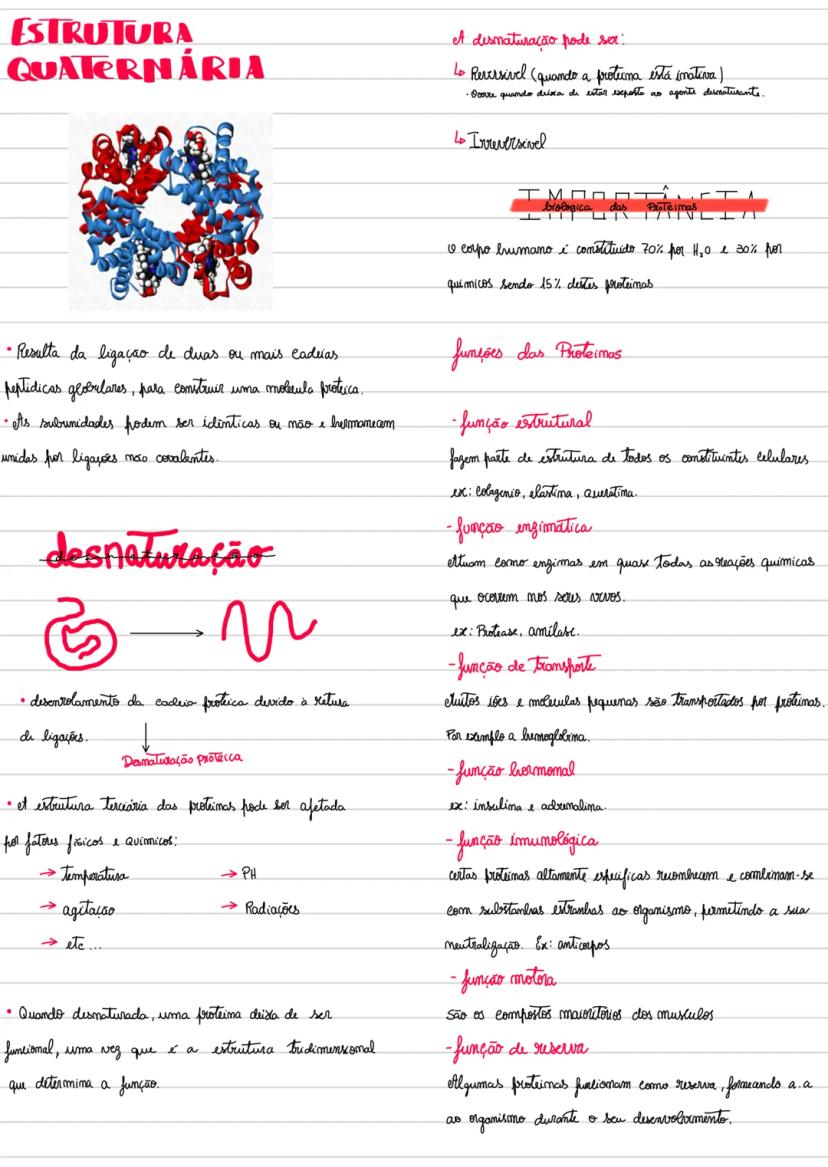 ESTRUTURA
QUATERNÁRIA
• Resulta da ligação de duas ou mais cadeias
peptidicas globulares, para construir uma molecula proteica.
• As subunidades podem ser idênticas ou não e permanecem
unidas por ligações não covalentes.
desnaturação
• desenrolamento da cadeia proteica devido à rotura
de ligações.
Desnaturação proteica
• A estrutura terciária das proteinas pode ser afetada
por fatores físicos e Químicos:
→ Temperatura → PH
→ agitação → Radiações
→ etc...
• Quando desnaturada, uma proteina deixa de ser
funcional, uma vez que é a estrutura tridimensional
que determina a função.
A desnaturação pode ser:
↳ Reversivel (quando a proteina está inativa)
• Ocorre quando deixa de estar exposta ao agente desnaturante.
↳ Irreversivel
IMPORTÂNCIA
biologica das Proteinas
O corpo humano é constituido 70% por H₂O e 30% por
quimicos sendo 15% destes proteinas
funções das Proteinas
- função estrutural
fazem parte de estrutura de todos os constituintes celulares
ex: Colagenio, elastina, Queratina.
- função enzimatica
Atuam como enzimas em quase todas as reações quimicas
que ocorrem nos seres vivos.
ex: Protease, amilase.
- função de transporte
Muitos iões e moleculas pequenas são transportados por proteinas.
Por exemplo a hemoglobina.
- função hormonal
ex: insulina e adrenalina.
- função imunológica
certas proteinas altamente especificas reconhecem e combinam-se
com substanbias estranhas ao organismo, permetindo a sua
neutralização. Ex: anticorpos
- função motora
são os compostos maioritórios dos musculos
- função de reserva
Algumas proteinas funcionam como reserva, fornecendo a.a
ao organismo durante o seu desenvolvimento.